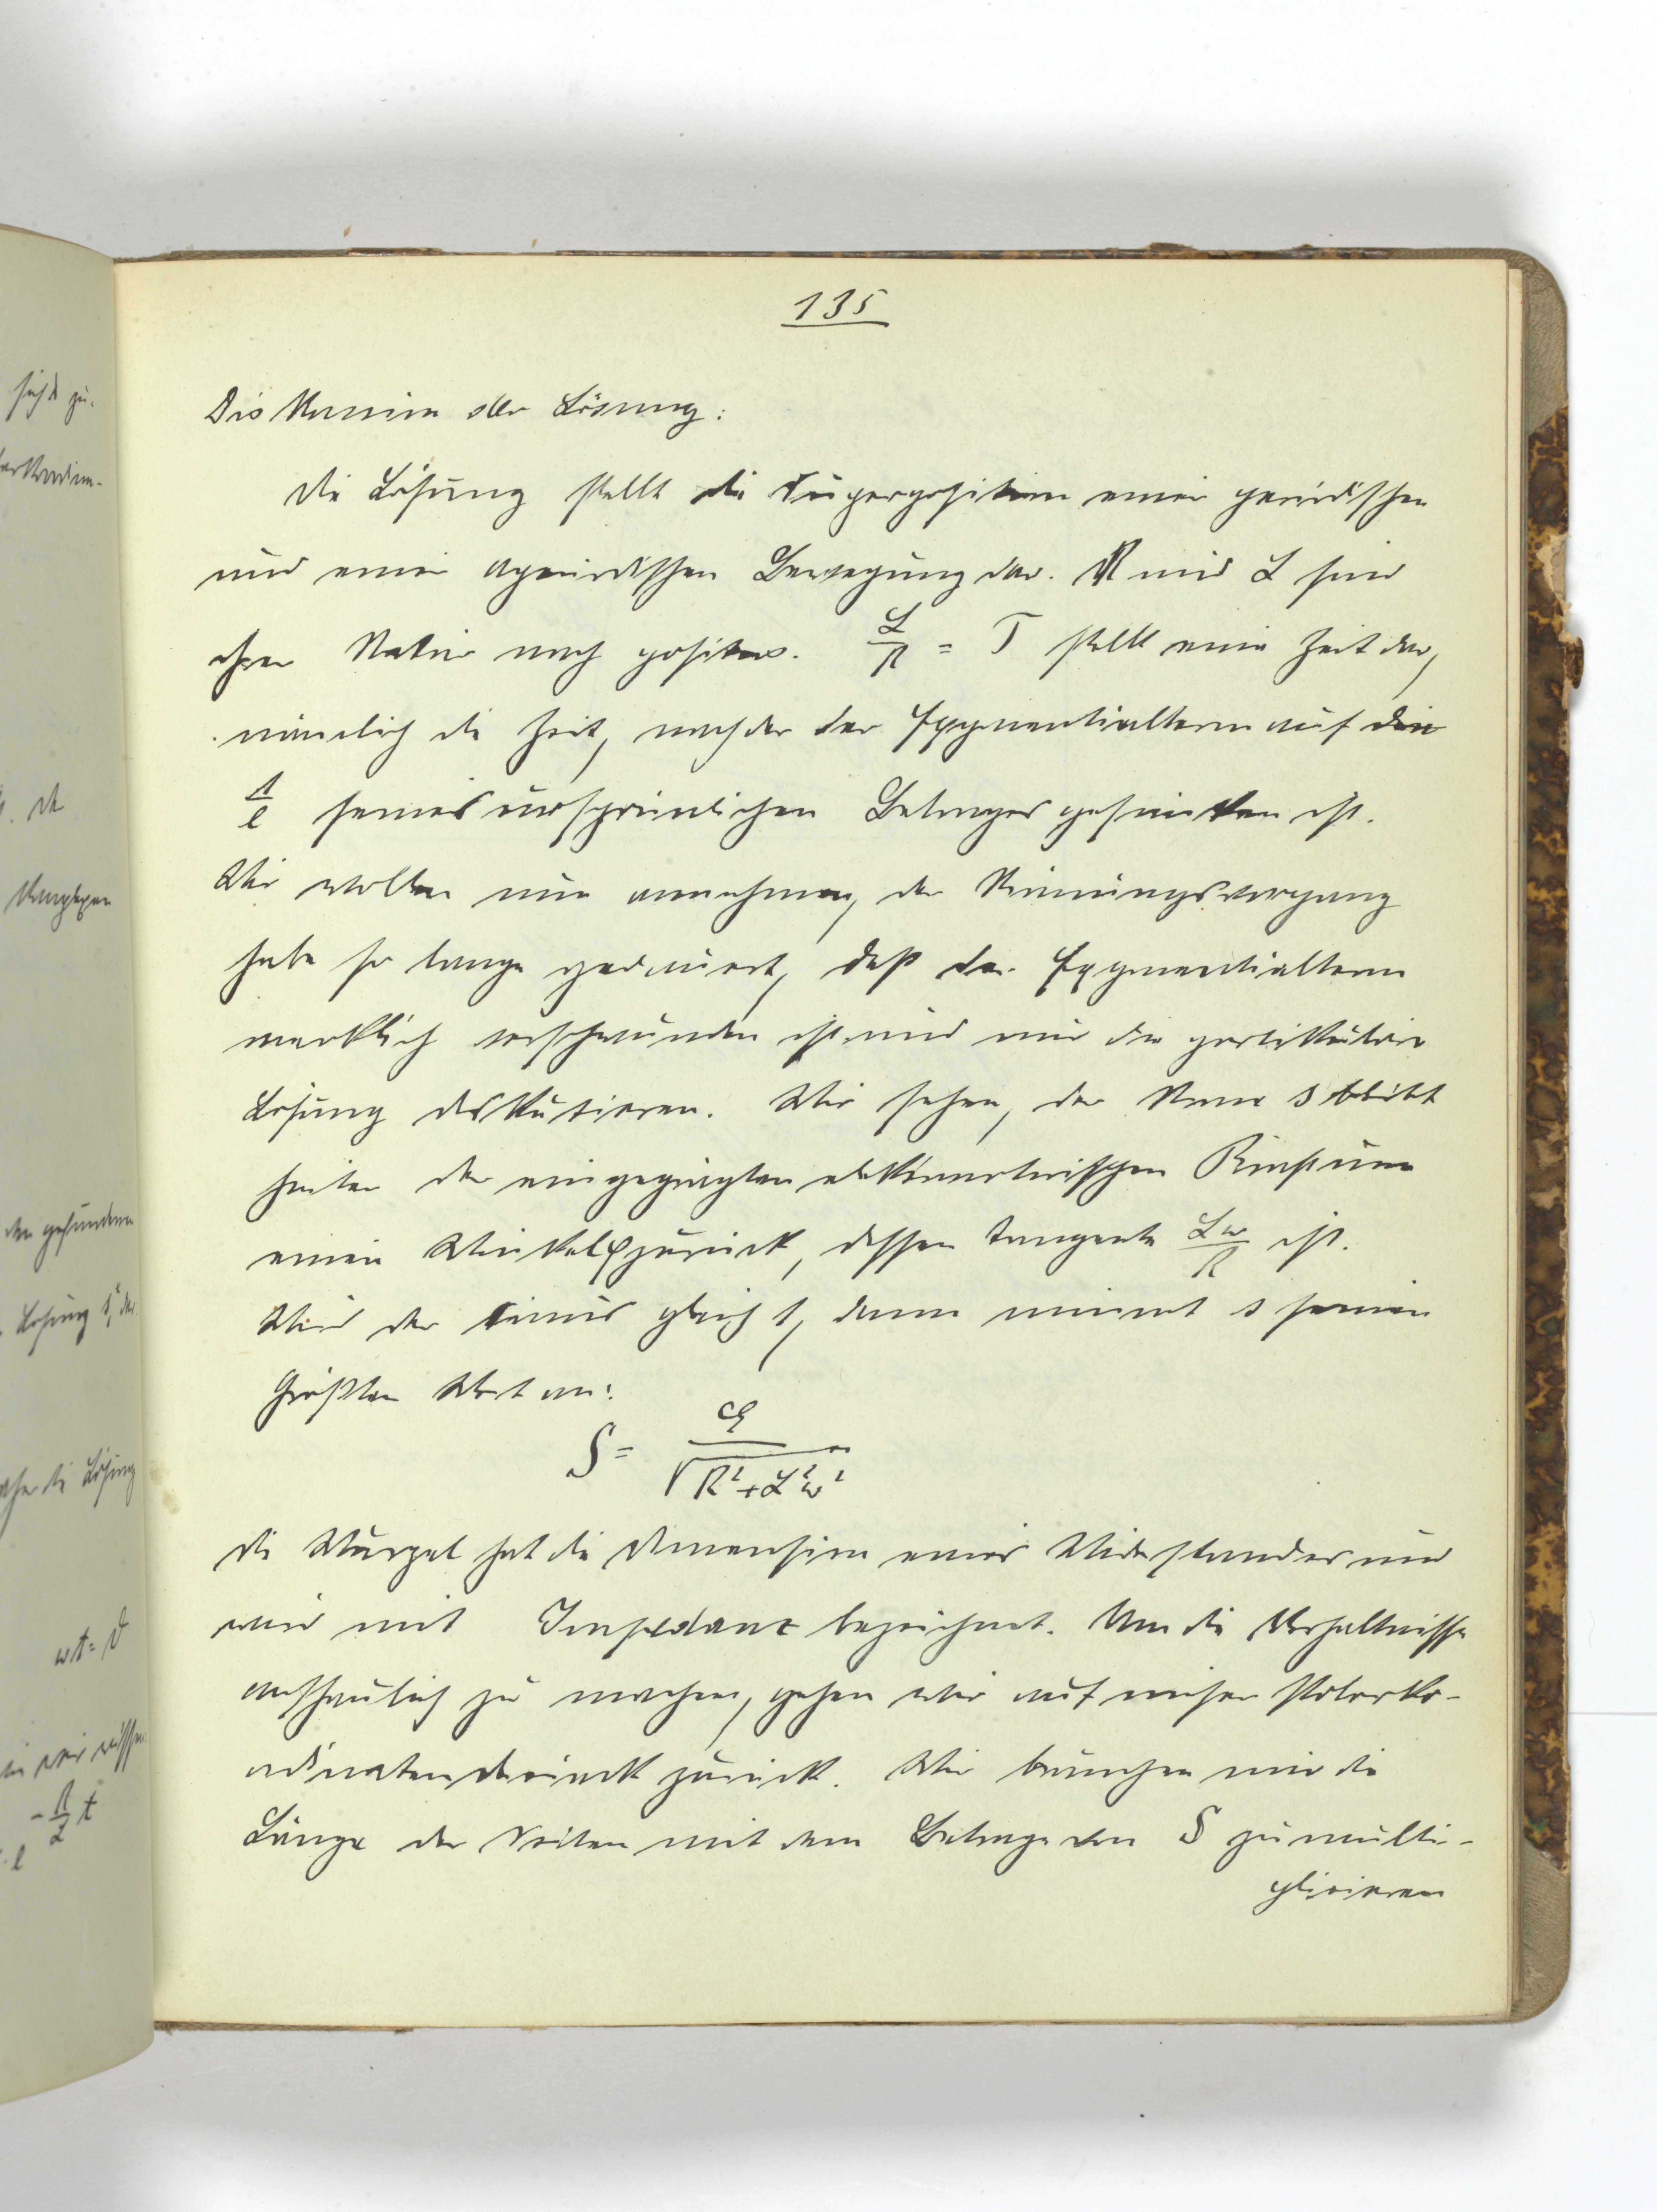 135
Diskussion der Lösung:
Die Lösung stellt die Superposition einer periodischen
und einer aperiodischen Bewegung dar. R und L sind
ihrer Natur nach positiv. L/R = T stellt eine Zeit dar,
nämlich die Zeit, nach der der Exponentialterm auf den
1/e seines ursprünlichen Betrages gesunken ist.
Wir wollen nun annehmen, der Strömungsvorgang
habe so lange gedauert, daß der Exponentialterm
merklich verschwunden ist und nur die partikuläre
Lösung diskutieren. Wir sehen, der Strom s bleibt
hinter der eingeprägten elektromotorischen Kraft um
einen Winkel φ zurück, dessen Tangente Lω/R ist.
Wird der sinus gleich 1, dann nimmt s seinen
größten Wert an:
S = E/√R²+L²ω²
Die Wurzel hat die Dimension eines Widerstandes und
wird mit Impedanz bezeichnet. Um die Verhältnisse
anschaulich zu machen, gehen wir auf unser Polarko-
ordinatendreieck zurück. Wir brauchen nur die
Länge der Seiten mit dem Betrage von S zu multi-
plizieren
sich zu.
der gefundenen
Lösung
die Lösung
ωt = ϑ
wir wissen
-R/L t
e